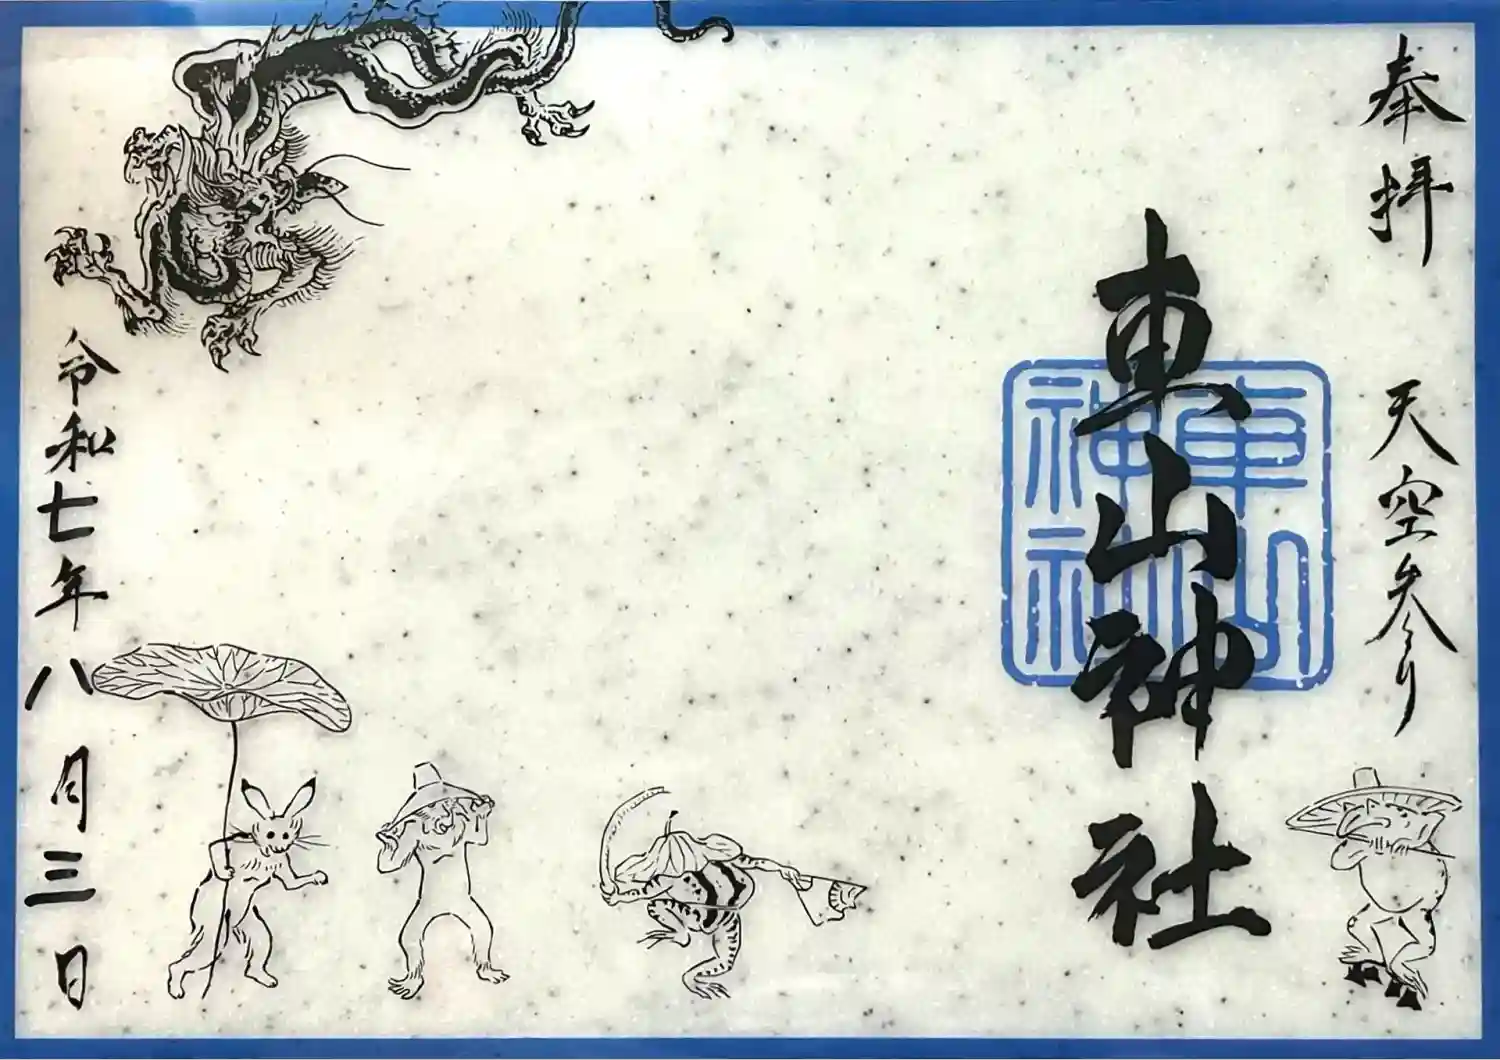 奉拝　天空参り
東山神社
東山神社
令和七年八月三日